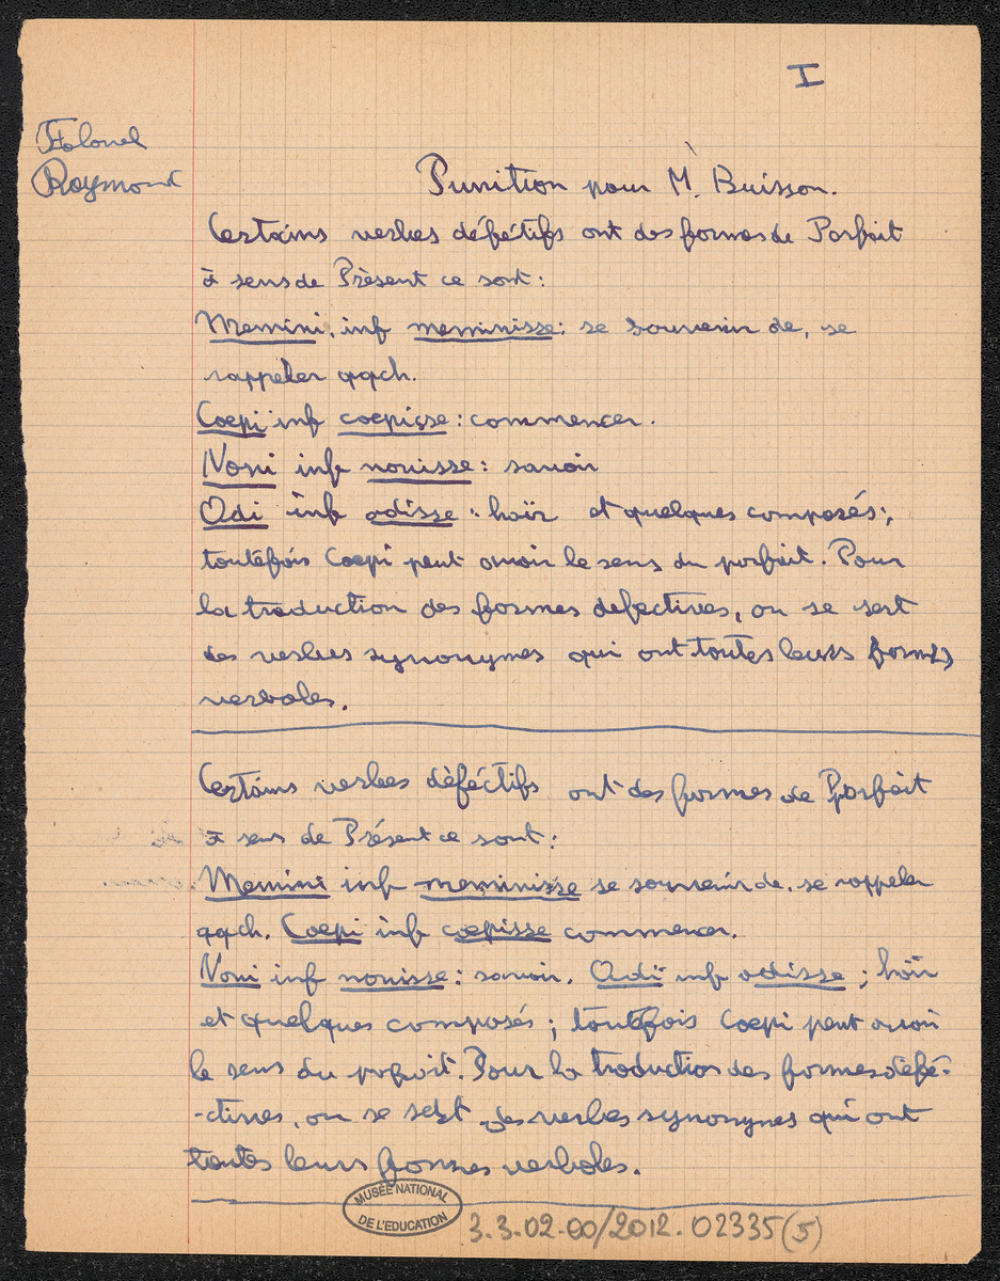 I
Raymond
Punition pour M. Buisson.
Certains verbes défétifs ont des formes de Parfait
à sens de Présent ce sont :
Memini, inf meminisse: se souvenir de, se
rappeler qqch.
Coepi inf coepisse : commencer.
Novi inf novisse : savoir
Odi inf odisse : haïr et quelques composés ;
toutefois Coepi peut avoir le sens du parfait. Pour
la traduction des formes defectives, on se sert
des verbes synonymes qui ont toutes leurs formes
verbales.
Certains verbes défectifs ont des formes de Parfait
à sens de Présent ce sont :
Memini inf meminisse se souvenir de, se rappeler
qqch. Coepi inf coepisse commencer.
Novi inf novisse : savoir. Odi inf odisse ; haïr
et quelques composés ; toutefois Coepi peut avoir
le sens du parfait. Pour la traduction des formes défé-
-ctives, on se sert des verbes synonymes qui ont
toutes leurs formes verbales.
MUSÉE NATIONAL
DE L'EDUCATION
3.3.02.00/2012.02335(5)